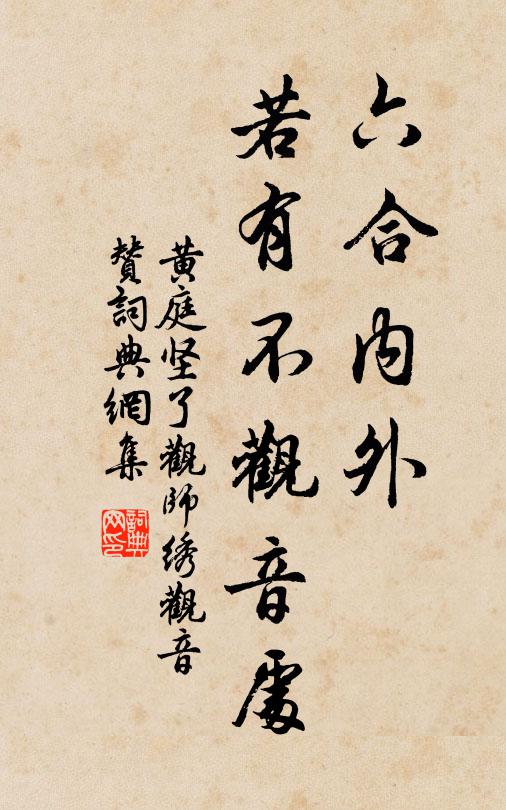 六合内外
若有不觀音處
黃庭坚了觀師绣觀音
贊詞典網集
詞典网印